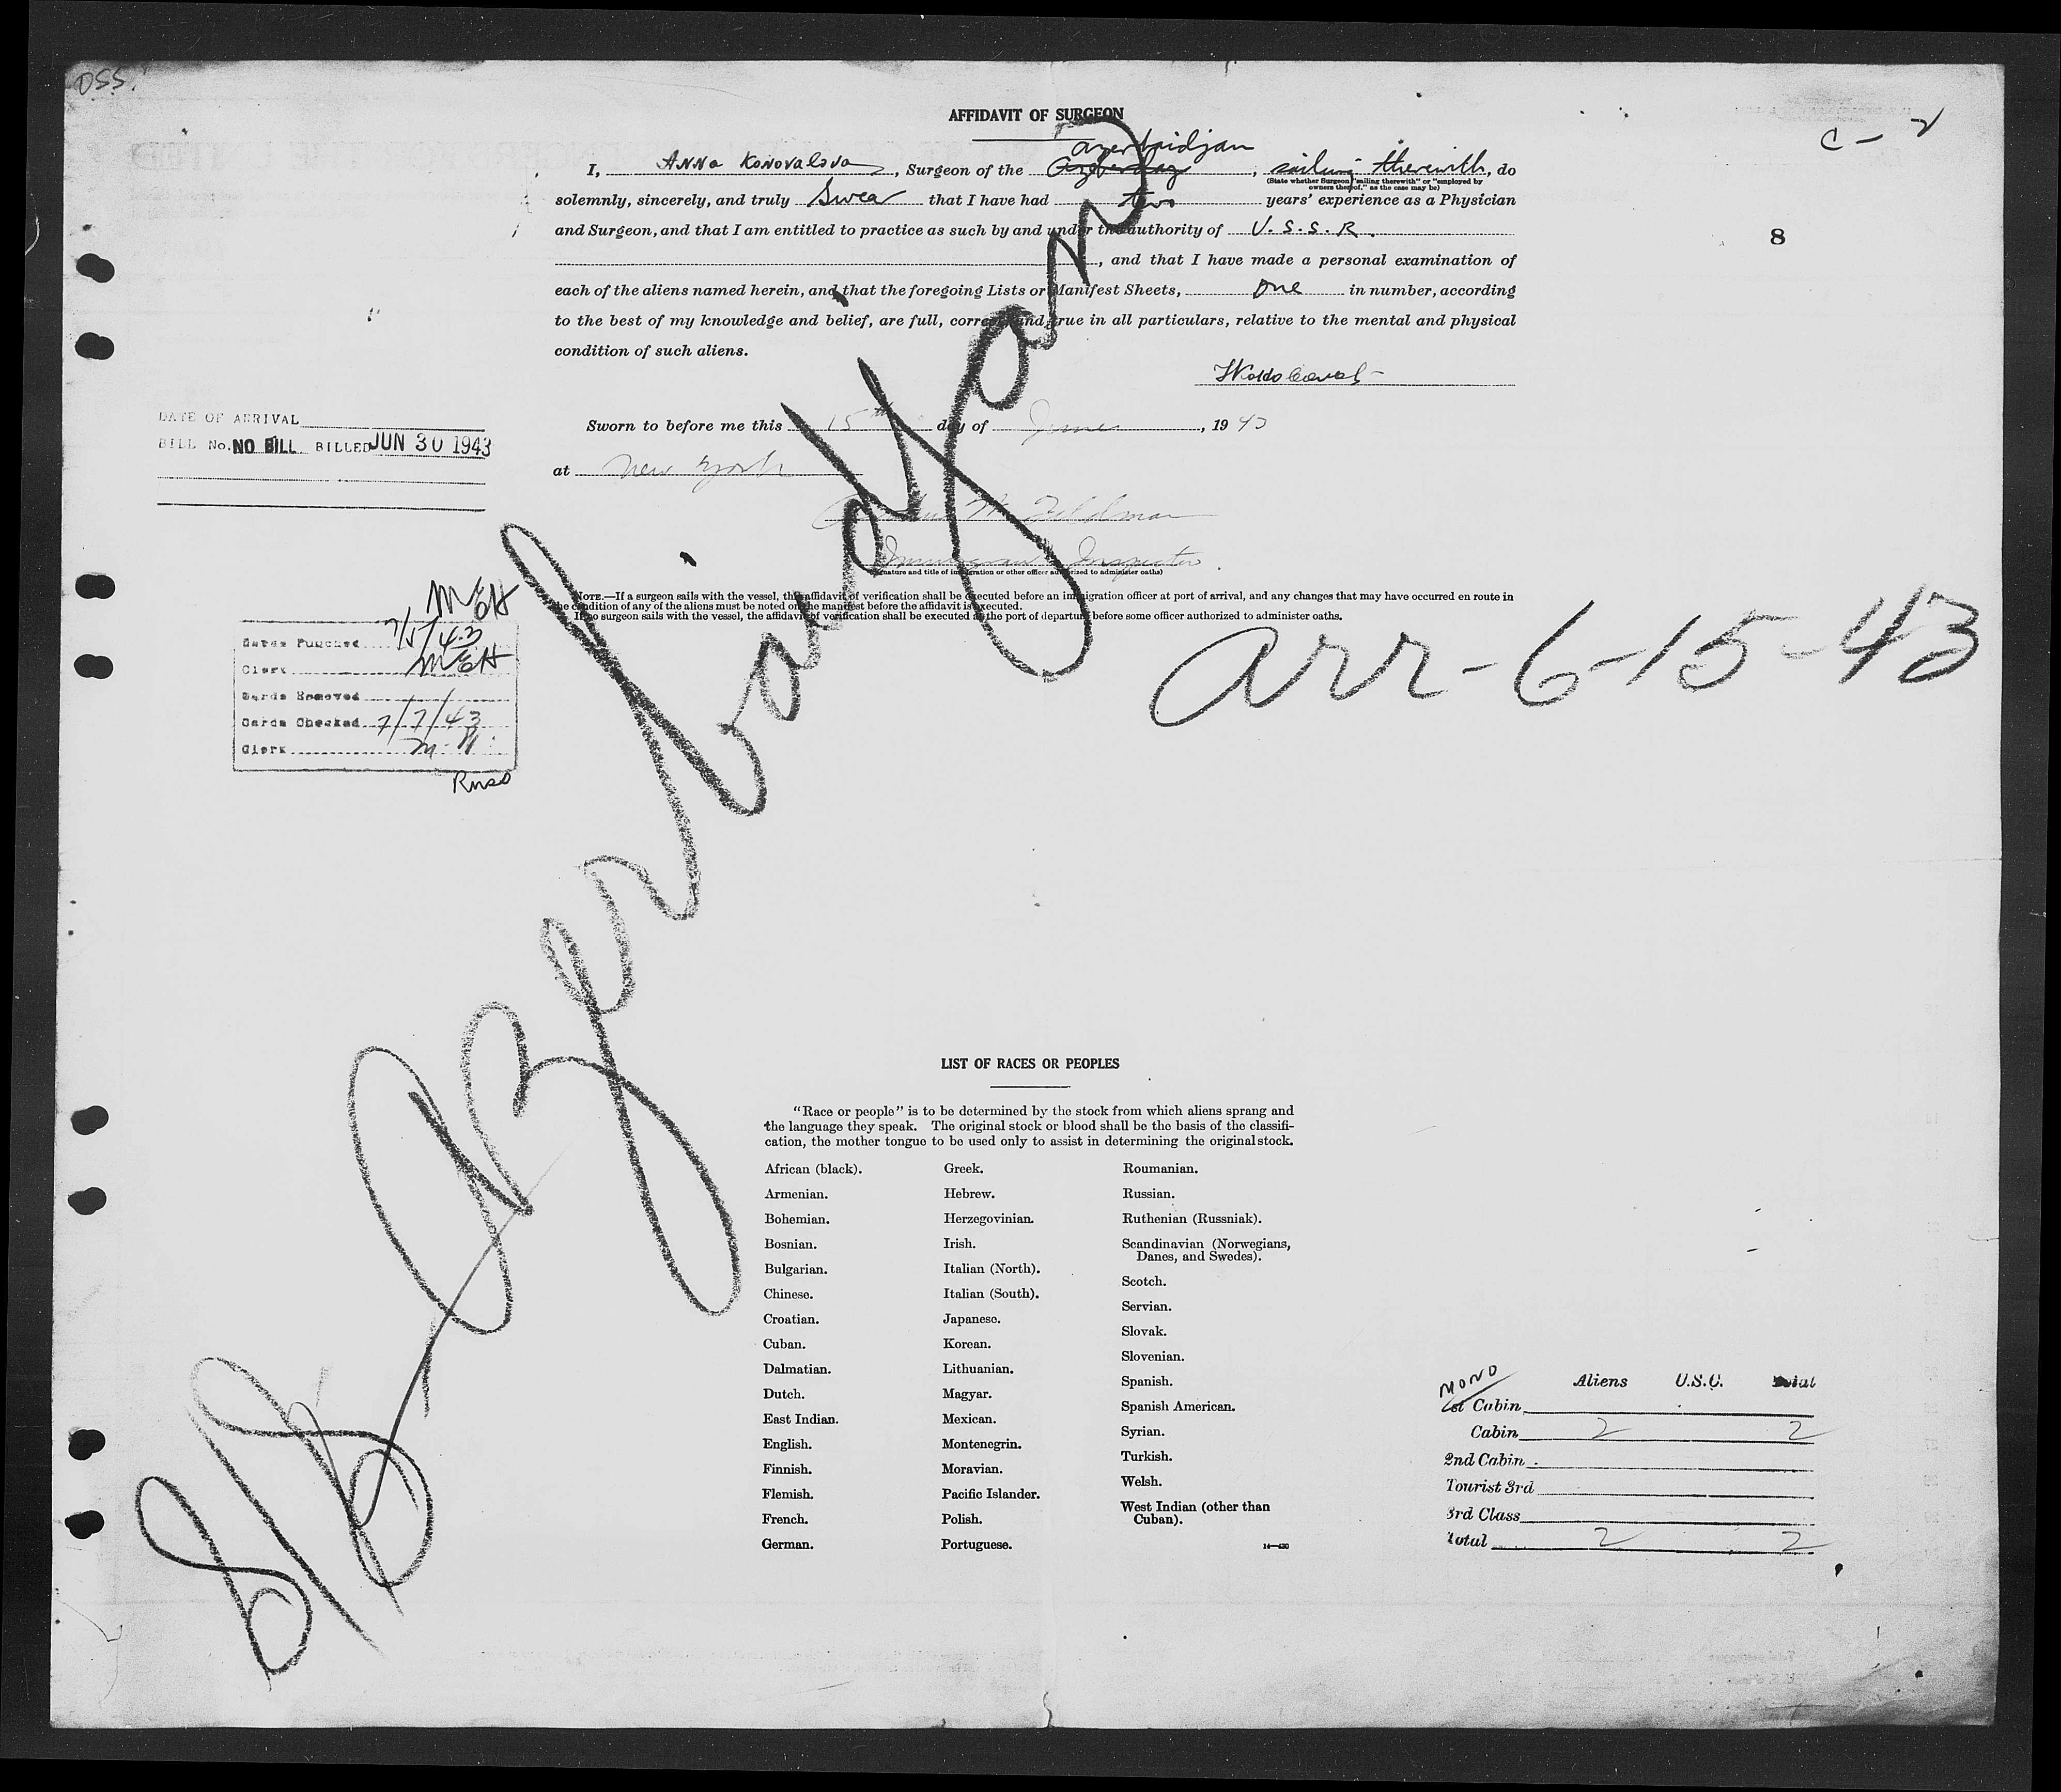 OSS.
C - 2
8
AFFIDAVIT OF SURGEON
I, Anna Konovalova, Surgeon of the Azerbaidjan, sailing therewith, do
(State whether Surgeon "sailing therewith" or "employed by
owners thereof," as the case may be)
solemnly, sincerely, and truly Swear that I have had two years' experience as a Physician
and Surgeon, and that I am entitled to practice as such by and under the authority of U.S.S.R.
, and that I have made a personal examination of
each of the aliens named herein, and that the foregoing Lists or Manifest Sheets, one in number, according
to the best of my knowledge and belief, are full, correct, and true in all particulars, relative to the mental and physical
condition of such aliens.
Sworn to before me this 15th day of June, 1943
at New York
M. Feldman
Immigrant Inspector
(Signature and title of immigration or other officer authorized to administer oaths)
NOTE.—If a surgeon sails with the vessel, the affidavit of verification shall be executed before an immigration officer at port of arrival, and any changes that may have occurred en route in
the condition of any of the aliens must be noted on the manifest before the affidavit is executed.
If no surgeon sails with the vessel, the affidavit of verification shall be executed at the port of departure before some officer authorized to administer oaths.
DATE OF ARRIVAL
BILL No. NO BILL BILLED JUN 30 1943
MEH
Cards Punched 7/5/43
Clerk MEH
Cards Removed
Cards Checked 7/7/43
Clerk
S/S Azerbaidjan
arr-6-15-43
LIST OF RACES OR PEOPLES
"Race or people" is to be determined by the stock from which aliens sprang and
the language they speak. The original stock or blood shall be the basis of the classifi-
cation, the mother tongue to be used only to assist in determining the original stock.
African (black).
Armenian.
Bohemian.
Bosnian.
Bulgarian.
Chinese.
Croatian.
Cuban.
Dalmatian.
Dutch.
East Indian.
English.
Finnish.
Flemish.
French.
German.
Greek.
Hebrew.
Herzegovinian.
Irish.
Italian (North).
Italian (South).
Japanese.
Korean.
Lithuanian.
Magyar.
Mexican.
Montenegrin.
Moravian.
Pacific Islander.
Polish.
Portuguese.
Roumanian.
Russian.
Ruthenian (Russniak).
Scandinavian (Norwegians,
Danes, and Swedes).
Scotch.
Servian.
Slovak.
Slovenian.
Spanish.
Spanish American.
Syrian.
Turkish.
Welsh.
West Indian (other than
Cuban).
MONO
Aliens U.S.C. Total
1st Cabin
Cabin 2 2
2nd Cabin
Tourist 3rd
3rd Class
Total 2 2